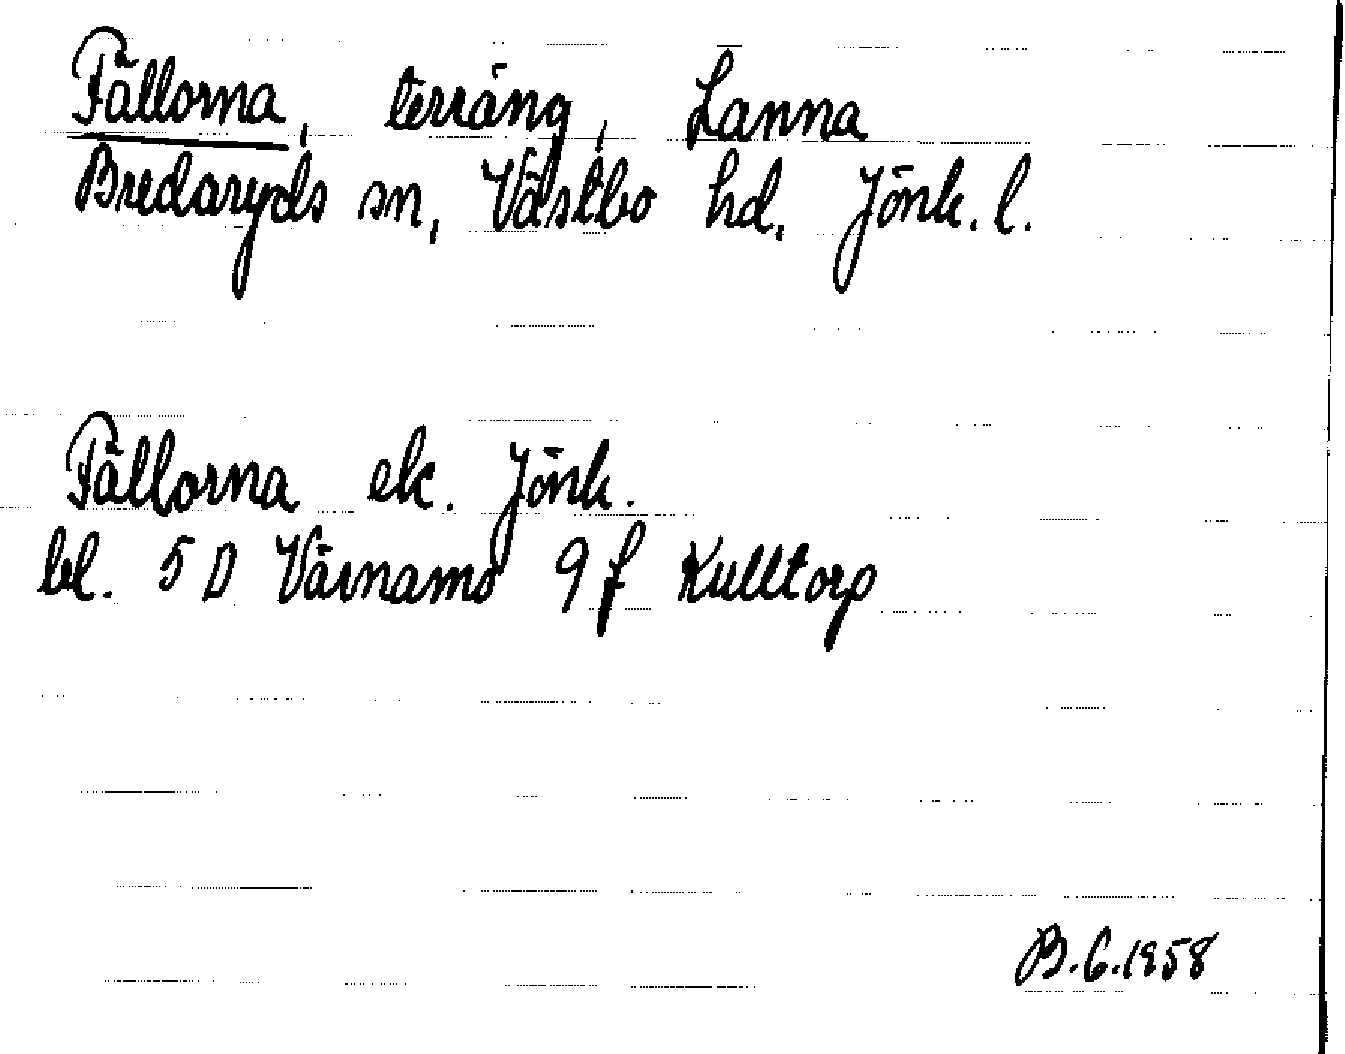 Fällorna, terräng, Lanna
Bredaryds sn, Västbo hd. Jönk. l.
Fällorna ek. Jönk.
bl. 5 D Värnamo 9 f Kulltorp
B.G.1958